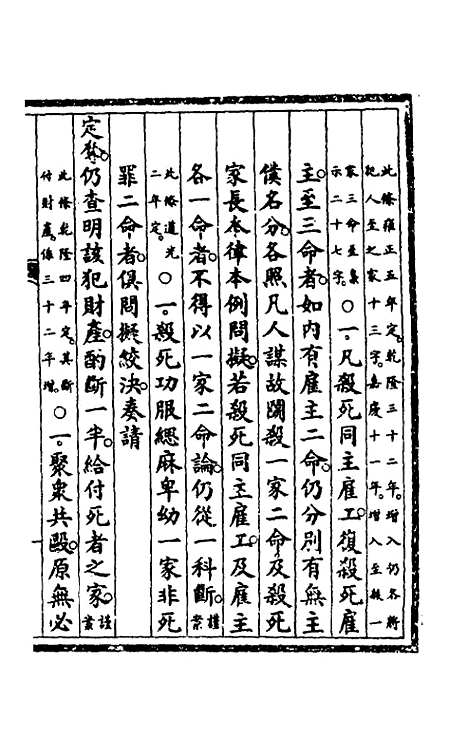 此條雍正五年定。乾隆三十二年。增入仍各將
犯人至之家十三字。嘉慶十一年。增入至數一
家三命至梟
示二十七字。
○一。凡殺死同主雇工。復殺死雇
主至三命者。如內有雇主二命。仍分別有無主
僕名分。各照凡人謀故鬪殺一家二命。及殺死
家長本律本例問擬。若殺死同主雇工。及雇主
各一命者。不得以一家二命論。仍從一科斷。謹案
此條道光
二年定。
○一。殺死功服緦麻卑幼一家非死
罪二命者。俱問擬絞決。奏請
定奪。仍查明該犯財產。酌斷一半。給付死者之家。謹案
此條乾隆四年定。其斷
付財產。係三十二年增。
○一。聚眾共毆。原無必